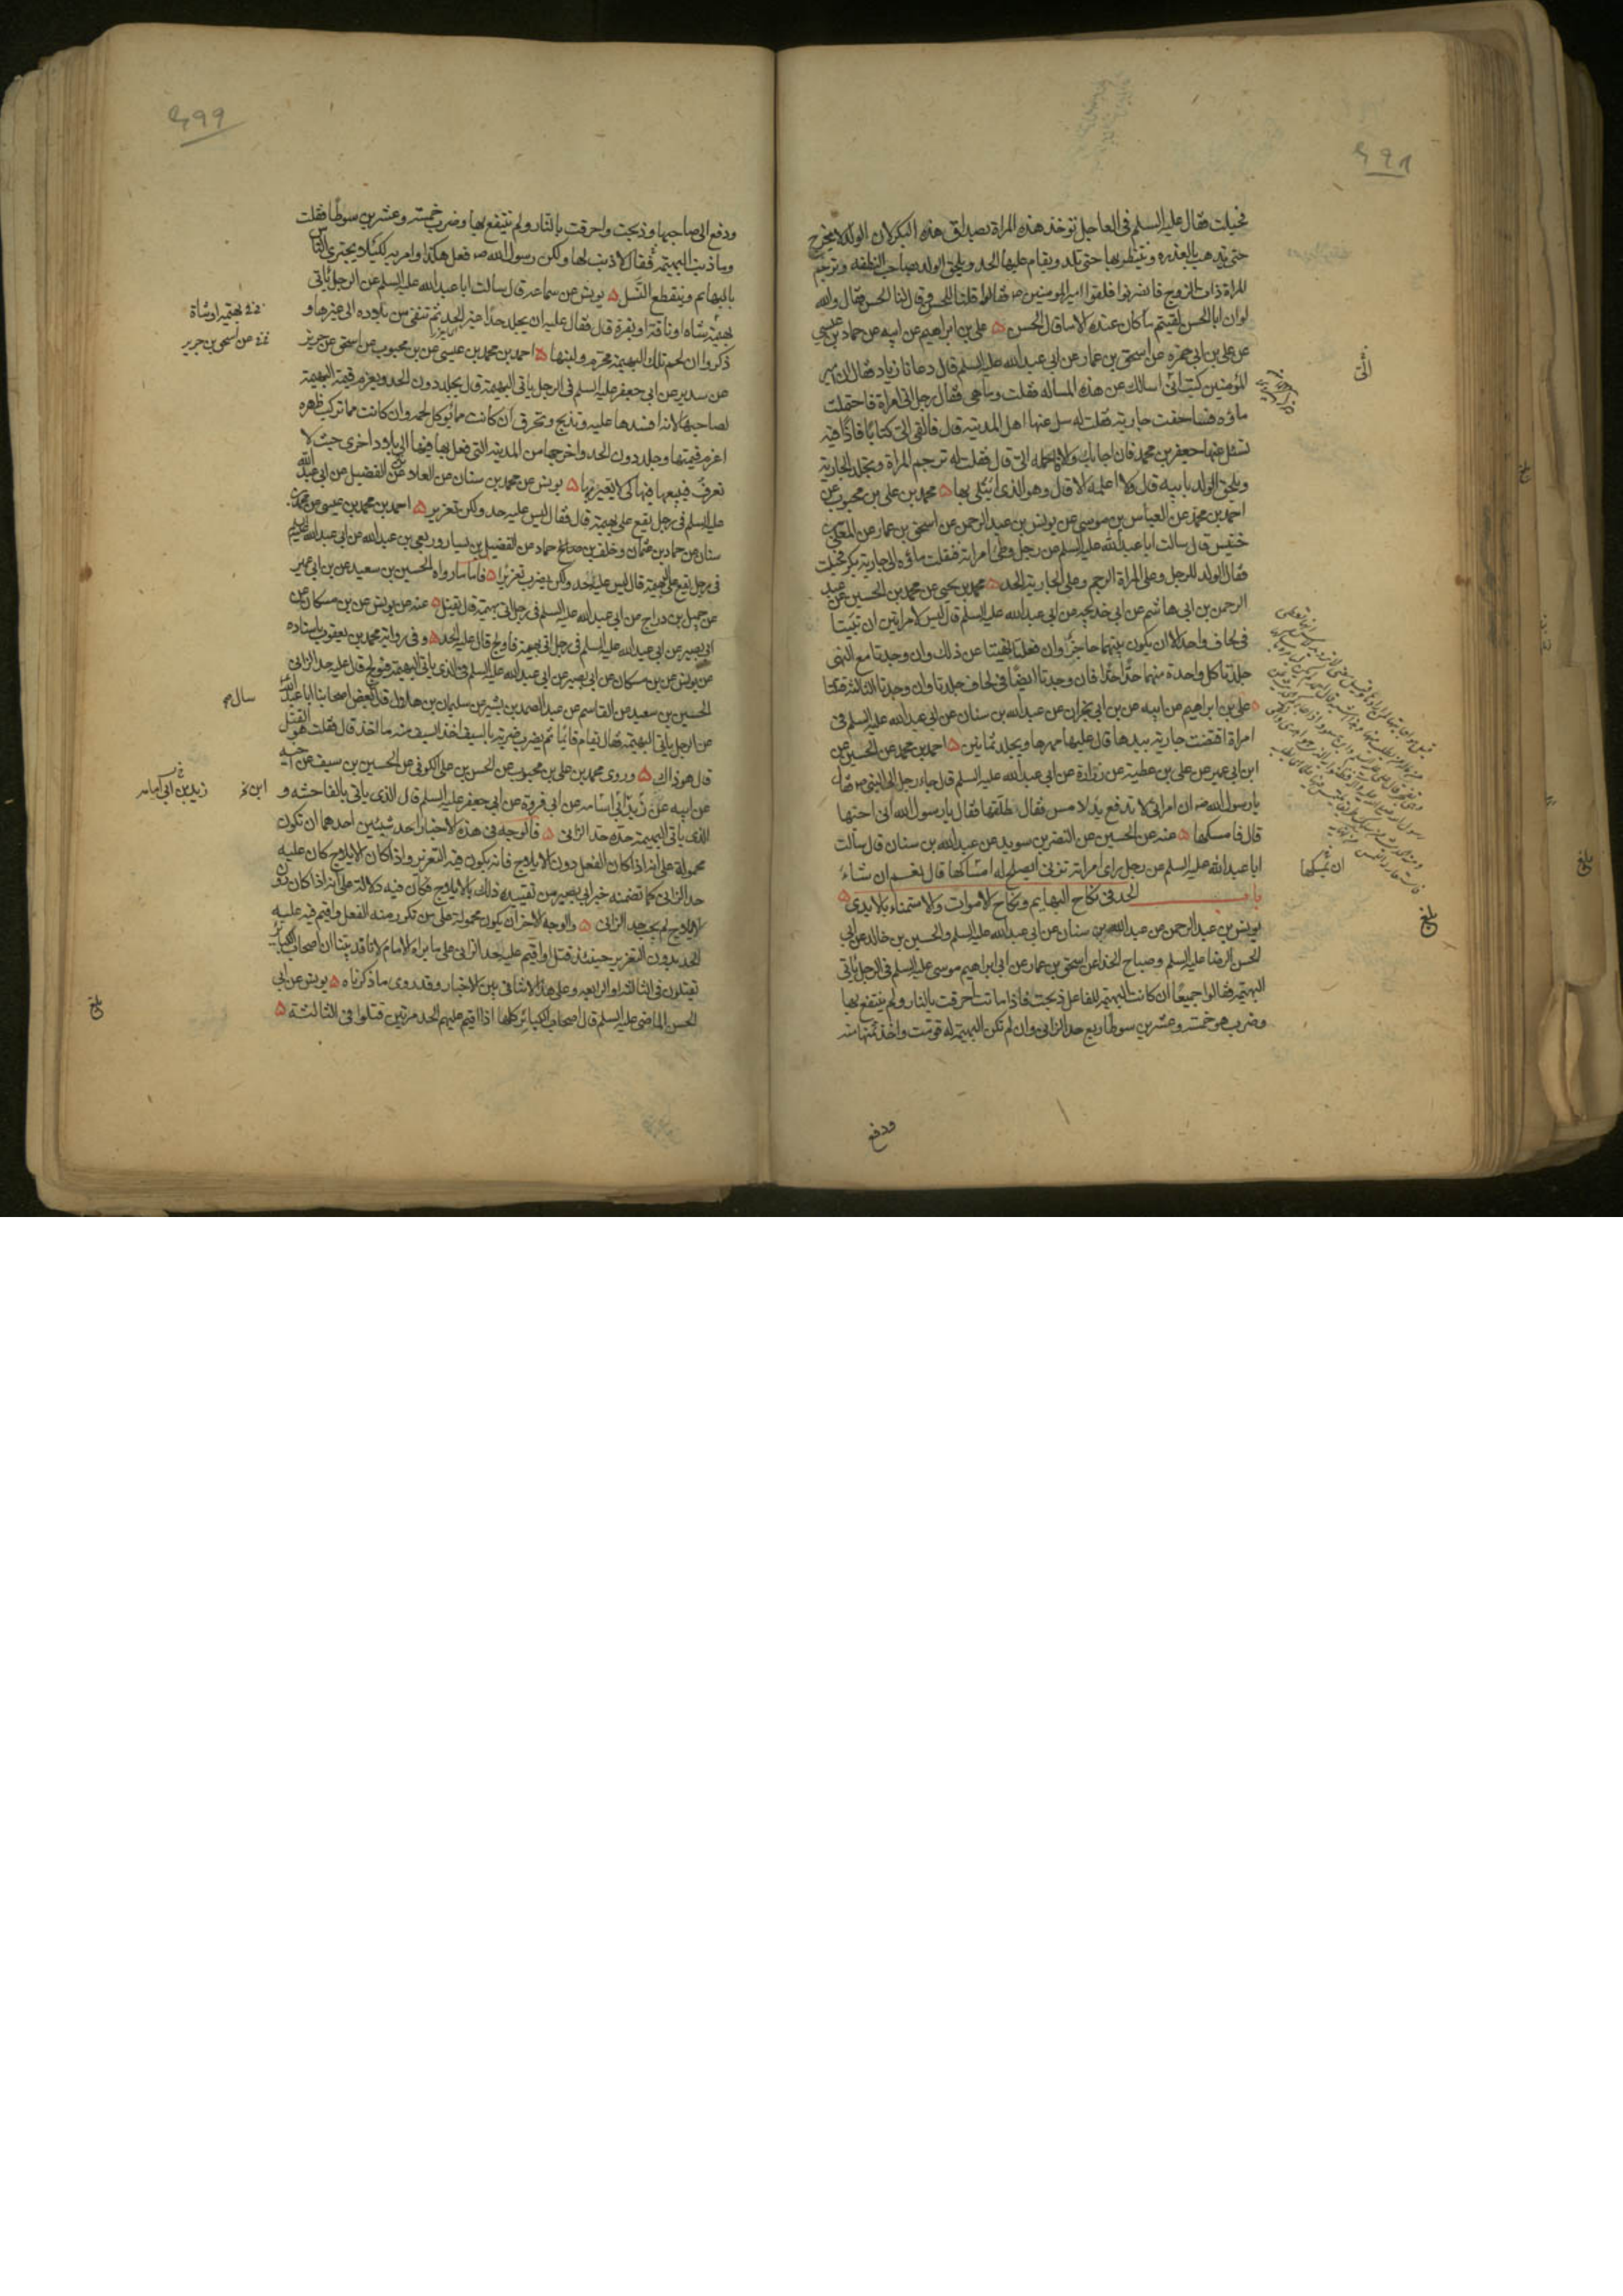 فحبلت فقال عليه السلم فى العاجل تؤخذ هذه المراة بصداق هذه البكر لان الولد لا يخرج
حتى تذهب بالعذره وينتظر بها حتى تلد ويقام عليها الحد ويلحق الولد بصاحب النطفه وترجم
المراة ذات الزوج فانصرفوا فلقوا امير المومنين ص فقالوا قلنا للحسن وقال لنا الحسن فقال والله
لو ان ابا الحسن لقيتم ما كان عنده الا ما قال الحسن ه على بن ابراهيم عن ابيه عن حماد بن عيسى
عن على بن ابى حمزه عن اسحق بن عمار عن ابى عبد الله عليه السلم قال دعانا زياد فقال ان امير
المؤمنين كتب الى اسالك عن هذه المساله فقلت وما هى فقال رجل اتى امراة فاحتملت
ماؤه فساحقت جارية فقلت له سل عنها اهل المدينه قال فالقى الى كتابا فاذا فيه
تسئل عنها جعفر بن محمد فان اجابك والا فاحمله الى قال فقلت له ترجم المراة وتجلد الجارية
ويلحق الولد بابيه قال ولا اعلمه الا قال وهو الذى ابتلى بها ه محمد بن على بن محبوب عن
احمد بن محمد عن العباس بن موسى عن يونس بن عبد الرحمن عن اسحق بن عمار عن المعلى بن
خنيس قال سالت ابا عبد الله عليه السلم عن رجل وطئ امراته فنقلت ماؤه الى جارية بكر فحبلت
فقال الولد للرجل وعلى المراة الرجم وعلى الجارية الحد ه محمد بن يحيى عن محمد بن الحسين عن عبد
الرحمن بن ابى هاشم عن ابى خديجه عن ابى عبد الله عليه السلم قال ليس لامراتين ان تبيتا
فى لحاف واحد الا ان يكون بينهما حاجز وان فعلتا نهيتا عن ذلك وان وجدتا مع النهى
جلدتا كل واحدة منهما حدا حدا فان وجدتا ايضا فى لحاف جلدتا وان وجدتا الثالثه قتلتا
ه على بن ابراهيم عن ابيه عن بن ابى نجران عن عبد الله بن سنان عن ابى عبد الله عليه السلم فى
امراة افتضت جارية بيدها قال عليها مهرها وتجلد ثمانين ه احمد بن محمد عن الحسين عن
ابن ابى عمير عن على بن عطية عن زرارة عن ابى عبد الله عليه السلم قال جاء رجل الى النبى ص فقال
يا رسول الله ص ان امراتى لا تدفع يد لامس فقال طلقها فقال يا رسول الله انى احبها
قال فامسكها ه عنه عن الحسين عن النضر بن سويد عن عبد الله بن سنان قال سالت
ابا عبد الله عليه السلم عن رجل راى امراته تزنى ايصلح له امساكها قال نعم ان شاء
باب الحد فى نكاح البهايم ونكاح الاموات والاستمناء بالايدى ه
يونس بن عبد الرحمن عن عبد الله بن سنان عن ابى عبد الله عليه السلم والحسين بن خالد عن ابى
الحسن الرضا عليه السلم وصباح الحذا عن اسحق بن عمار عن ابى ابراهيم موسى عليه السلم فى الرجل ياتى
البهيمه فقالوا جميعا ان كانت البهيمه للفاعل ذبحت فاذا ماتت احرقت بالنار ولم ينتفع بها
وضرب هو خمسة وعشرين سوطا ربع حد الزانى وان لم تكن البهيمه له قومت واخذ ثمنها منه
ودفع
الى
ان يمسكها
بلغ
ودفع الى صاحبها وذبحت واحرقت بالنار ولم ينتفع بها وضرب خمسة وعشرين سوطا فقلت
وما ذنب البهيمه فقال لا ذنب لها ولكن رسول الله ص فعل هكذا وامر به لكيلا يجترى الناس
بالبهايم وينقطع النسل ه يونس عن سماعه قال سالت ابا عبد الله عليه السلم عن الرجل ياتى
بهيمة شاه او ناقة او بقرة قال فقال عليه ان يجلد حدا غير الحد ثم ينفى من بلاده الى غيرها و
ذكروا ان لحم تلك البهيمة محرم ولبنها ه احمد بن محمد بن عيسى عن بن محبوب عن اسحق عن حريز
عن سدير عن ابى جعفر عليه السلم فى الرجل ياتى البهيمة قال يجلد دون الحد ويغرم قيمة البهيمة
لصاحبها لانه افسدها عليه وتذبح وتحرق ان كانت مما يؤكل لحمه وان كانت مما تركب ظهره
اغرم قيمتها وجلد دون الحد واخرجها من المدينه التى فعل بها فيها الى بلاد اخرى حيث لا
تعرف فيبيعها فيها كى لا يعير بها ه يونس عن محمد بن سنان عن العلا عن الفضيل عن ابى عبد الله
عليه السلم فى رجل يقع على بهيمة قال فقال ليس عليه حد ولكن تعزير ه احمد بن محمد بن عيسى عن محمد بن
سنان عن حماد بن عثمان وخلف بن حماد عن الفضيل بن يسار وربعى بن عبد الله عن ابى عبد الله عليه السلم
فى رجل يقع على البهيمة قال ليس عليه حد ولكن يضرب تعزيرا ه فاما ما رواه الحسين بن سعيد عن بن ابى عمير
عن جميل بن دراج عن ابى عبد الله عليه السلم فى رجل اتى بهيمة قال يقتل ه عنه عن يونس عن بن مسكان عن
ابى بصير عن ابى عبد الله عليه السلم فى رجل اتى بهيمة فاولج قال عليه الحد ه وفى رواية محمد بن يعقوب باسناده
عن يونس عن بن مسكان عن ابى بصير عن ابى عبد الله عليه السلم فى الذى ياتى البهيمة فيولج قال عليه حد الزانى
الحسين بن سعيد عن القاسم عن عبد الصمد بن بشير عن سليمان بن هلال قال بعض اصحابنا ابا عبد الله
عن الرجل ياتى البهيمة فقال يقام قائما ثم يضرب ضربة بالسيف اخذ السيف منه ما اخذ قال فقلت هو القتل
قال هو ذاك ه وروى محمد بن على بن محبوب عن الحسن بن على الكوفى عن الحسين بن سيف عن اخيه
عن ابيه عن زيد ابى اسامه عن ابى فروة عن ابى جعفر عليه السلم قال الذى ياتى بالفاحشه و
الذى ياتى البهيمة حده حد الزانى ه فالوجه فى هذه الاخبار احد شيئين احدهما ان تكون
محمولة على انه اذا كان الفعل دون الايلاج فانه يكون فيه التعزير واذا كان الايلاج كان عليه
حد الزانى كما تضمنه خبر ابى بصير من تقييده ذلك بالايلاج فكان فيه دلالة على انه اذا كان دون
الايلاج لم يجب حد الزانى ه والوجه الاخر ان يكون محمولة على من تكرر منه الفعل واقيم فيه عليه
الحد بدون التعزير حينئذ قتل او اقيم عليه حد الزانى على ما يراه الامام لانا قد بينا ان اصحاب الكبائر
يقتلون فى الثالثه او الرابعه وعلى هذا لا تنافى بين الاخبار وقد روى ما ذكرناه ه يونس عن ابى
الحسن الماضى عليه السلم قال اصحاب الكبائر كلها اذا اقيم عليهم الحد مرتين قتلوا فى الثالثة ه
بهيمة او شاة
عن اسحق بن جرير
سال
زيد بن ابى اسامه
بلغ